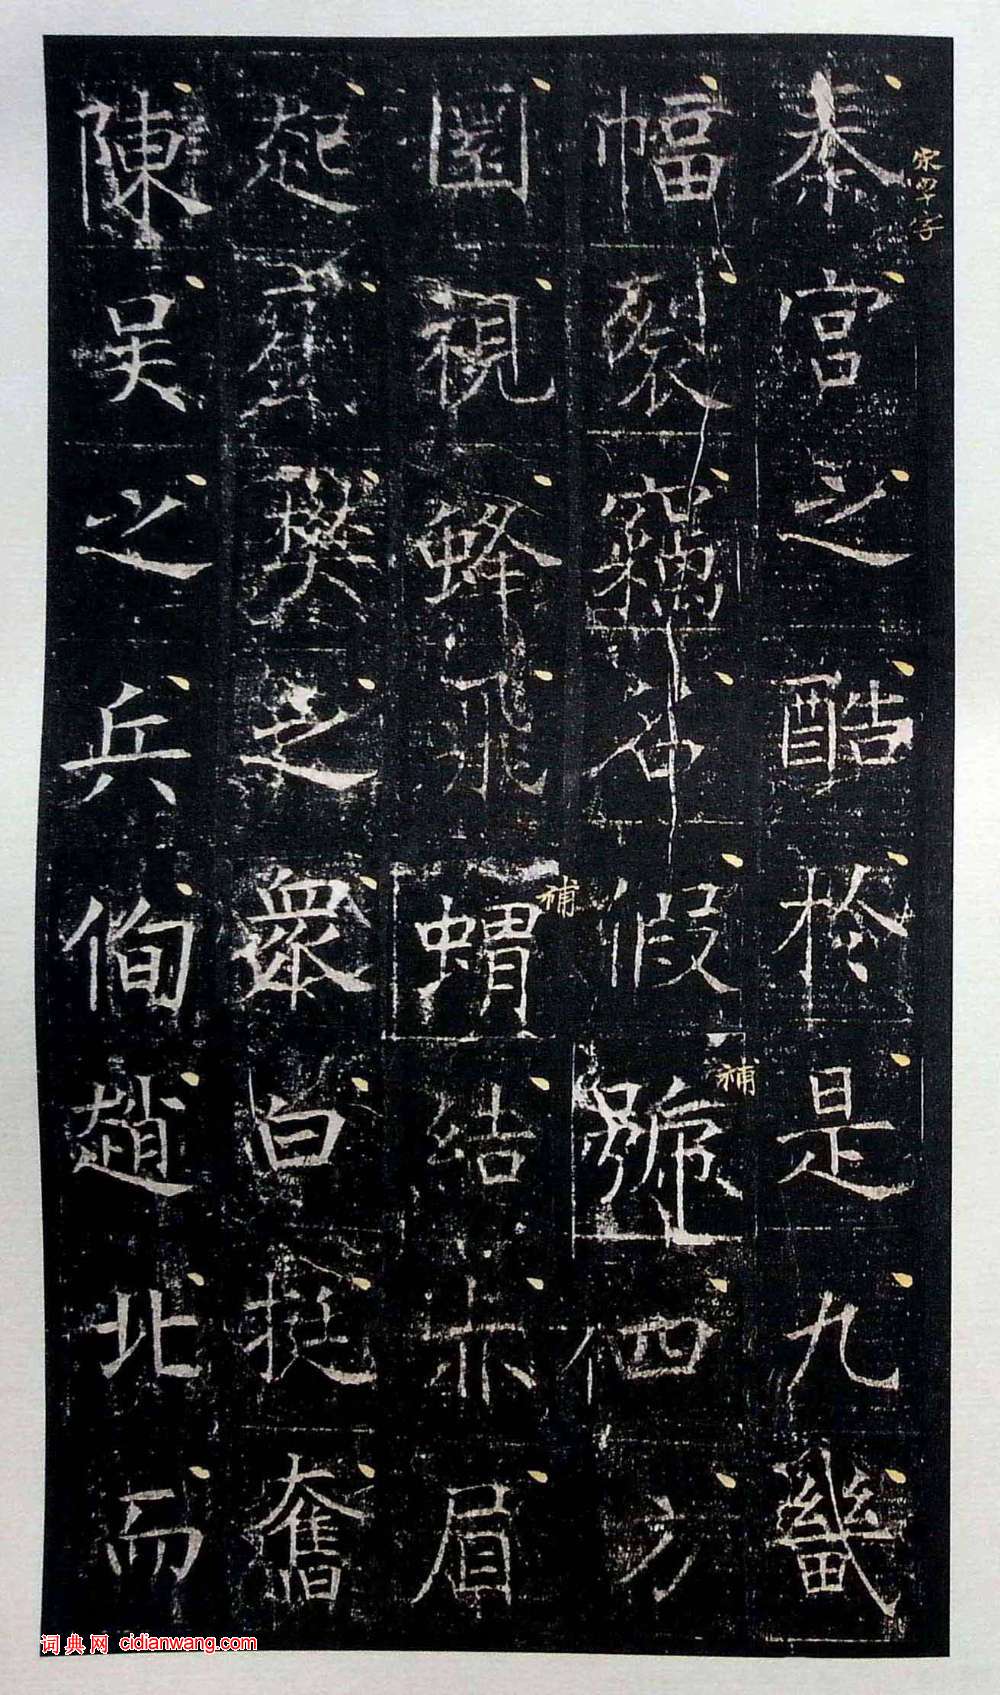 秦宫之酷於是九畿
幅裂竊名假號四方
圜視蜂飛蝟結赤眉
起莽樊之眾白挺奮
陳吳之兵佝趙北而
補
補
词典网 cidianwang.com